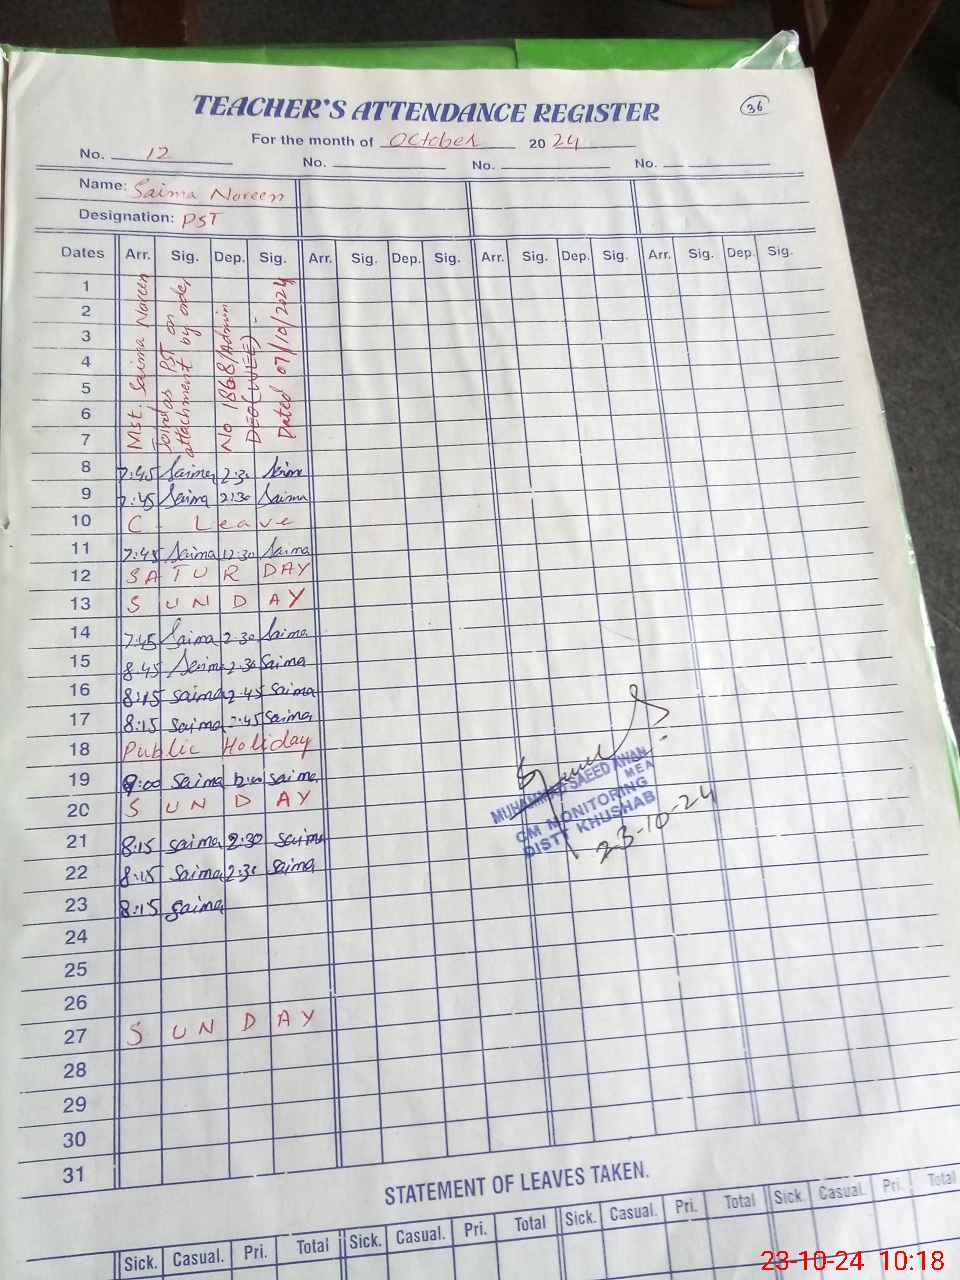 TEACHER'S ATTENDANCE REGISTER
36
For the month of October 2024
No. 12 No. No. No.
Name: Saima Noreen
Designation: PST
Dates Arr. Sig. Dep. Sig. Arr. Sig. Dep. Sig. Arr. Sig. Dep. Sig. Arr. Sig. Dep. Sig.
Mst. Saima Noreen
Joind as PST on
attachment by order
No 1868/Admin
DEO(WEE)
Dated 07/10/2024
1
2
3
4
5
6
7
8 7:45 Saima 2:30 Saima
9 7:45 Saima 2:30 Saima
10 C Leave
11 7:45 Saima 12:30 Saima
12 SATURDAY
13 SUNDAY
14 7:45 Saima 2:30 Saima
15 8:45 Saima 2:30 Saima
16 8:15 Saima 2:45 Saima
17 8:15 Saima 2:45 Saima
18 Public Holiday
19 9:00 Saima 12:00 Saima
20 SUNDAY
21 8:15 Saima 2:30 Saima
22 8:15 Saima 2:30 Saima
23 8:15 Saima
24
25
26
27 SUNDAY
28
29
30
31
MUHAMMAD SAEED AHAN
MEA
CM MONITORING
DISTT KHUSHAB
23-10-24
STATEMENT OF LEAVES TAKEN.
Sick. Casual. Pri. Total Sick. Casual. Pri. Total Sick. Casual. Pri. Total Sick. Casual. Pri. Total
23-10-24 10:18